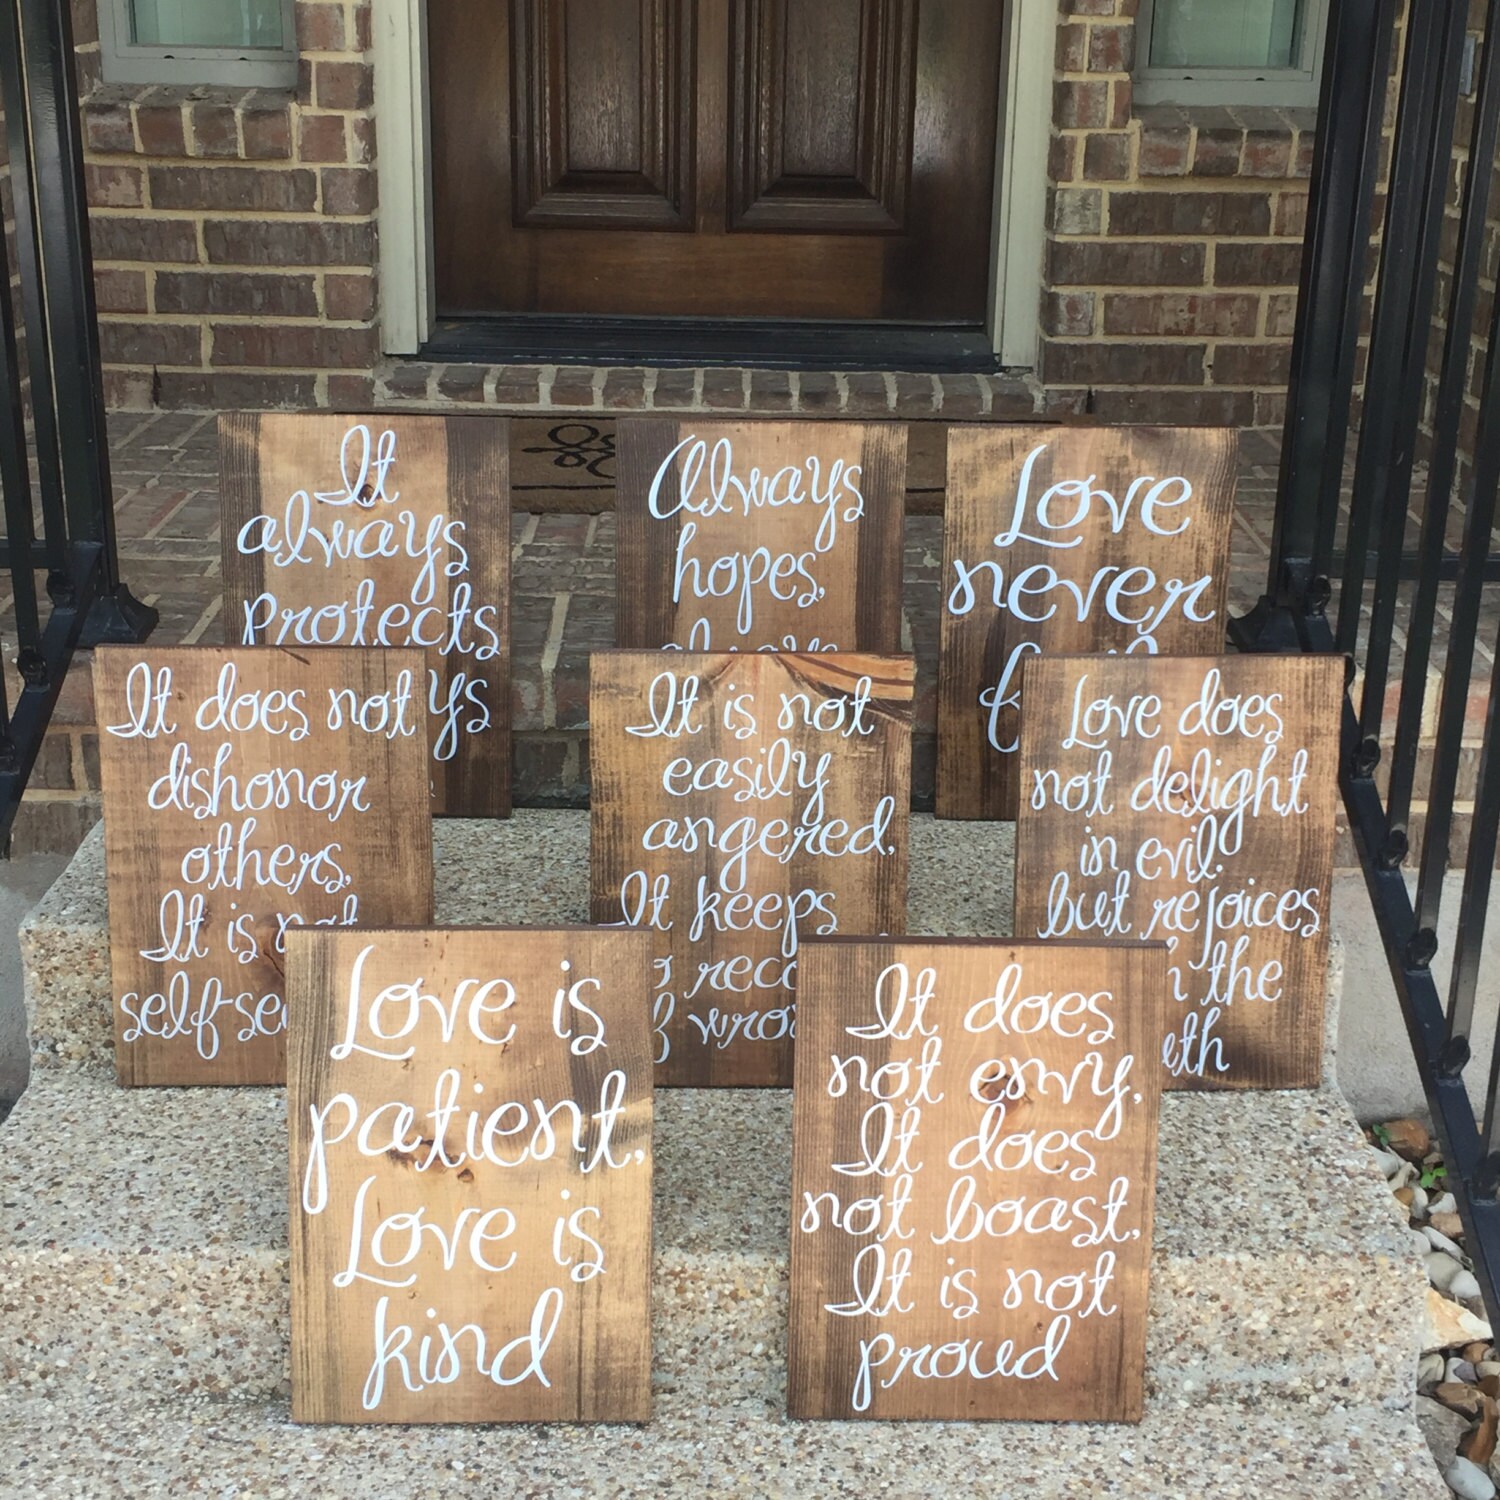 It
always
protects
ys
Always
hopes,
always
Love
never
It does not
dishonor
others,
It is not
It is not
easily
angered,
It keeps
wro
Love does
not delight
in evil.
but rejoices
the
Love is
patient,
Love is
kind
It does
not envy,
It does
not boast,
It is not
proud